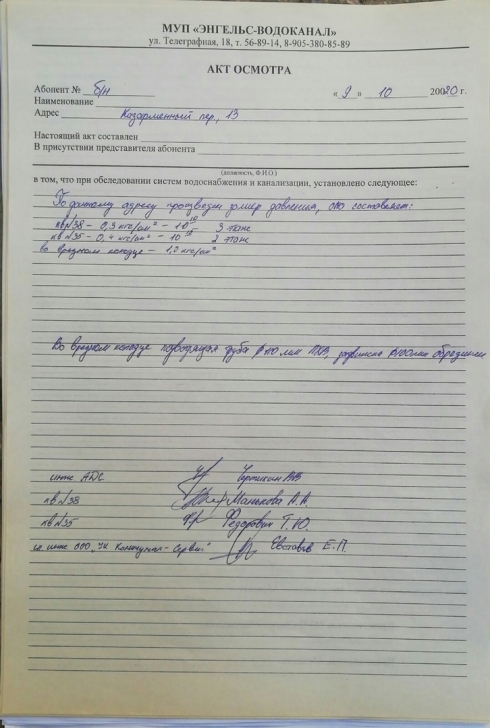 МУП «ЭНГЕЛЬС-ВОДОКАНАЛ»
ул. Телеграфная, 18, т. 56-89-14, 8-905-380-85-89
АКТ ОСМОТРА
Абонент № б/н « 9 » 10 20020 г.
Наименование
Адрес Казарменный пер, 13
Настоящий акт составлен
В присутствии представителя абонента
(должность, Ф.И.О.)
в том, что при обследовании систем водоснабжения и канализации, установлено следующее:
По данному адресу произведен замер давления, оно составляет:
кв №38 - 0,3 кгс/см² - 10¹⁰ 3 этаж
кв №35 - 0,4 кгс/см² - 10¹⁵ 2 этаже
во врезном колодце - 1,2 кгс/см²
Во врезном колодце подводящая труба ф110 мм ПНД, задвижка ф100мм
инж АДС
кв №38 Малькова А.А.
кв №35 Федорович Т.Ю.
гл. инж ООО "УК Коммунал-Сервис" Е.П.